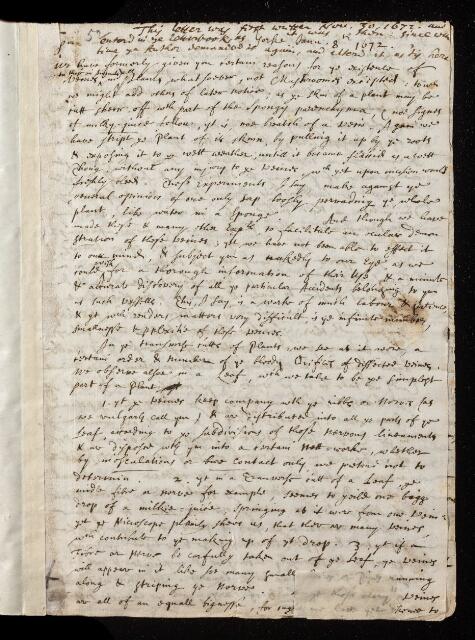 This letter was first written Nov. 30, 1672. and
Entered in ye Letterbook
time ye Author demanded it again, and altered it, as tis here
We have formerly given you certain reasons for ye existence of
Veines in Plants whatsoever, not Mushrooms excepted: to wch
we might add others of later notice, as ye skin of a plant may be
cutt sheer off wth part of the spongy parenchyma, & not signes
of milky-juice follow, yt is, noe breach of a Veine. Again we
have stript ye plant of its skinn, by pulling it up by ye roots
& exposing it to ye wett weather, untill it became flaccid as a wett
thong, without any injury to ye Veines, wch yet upon incision would
freshly bleed. These experiments I say, make against ye
general opinion of one only sap loosly pervading ye whole
plant, like water in a Sponge. And though we have
made these & many other to facilitate an oculare demon
stration of these Veines; yet we have not been able to effect it
to our minds, & subject ym as nakedly to our Eye as we
could wish for a thorough information of their Use & a minute
& accurate discovery of all ye particular Accidents belonging to ym
as such vessells. This, I say, is a worke of much labour & patience,
& yt wch renders matters very difficult is ye infinite number,
smallnesse & of these Veines.
In ye transverse cutts of Plants, we see as it were, a
certain order & number of ye bloody Orifices of dissected Veines.
We observe allsoe in a Leaf, wch we take to be ye simplest
part of a plant,
1. yt ye Veines keep company with ye ribbs or Nerves (as
we vulgarly call ym) & are distributed into all ye parts of ye
leaf according to ye subdivisions of those nervous lineaments
& are disposed wth ym into a certain Nett-worke, whether
by inosculations or bare contact only, we pretend not to
determin. 2. yt in a Transverse cutt of a Leaf ye
midle fibre or nerve for example, seemes to yeild one bigg
drop of a milkie-juice, springing as it were from one Veine:
yet ye Microscope plainly shews us, that ther are many Veines,
wch contribute to ye making up of yt drop. 3. yt if a
Fibre or Nerve be carfully taken out of ye Leaf, ye Veines
will appear in it like soe many small running
along & striping ye Nerve.
are all of an equall bignesse, Veines